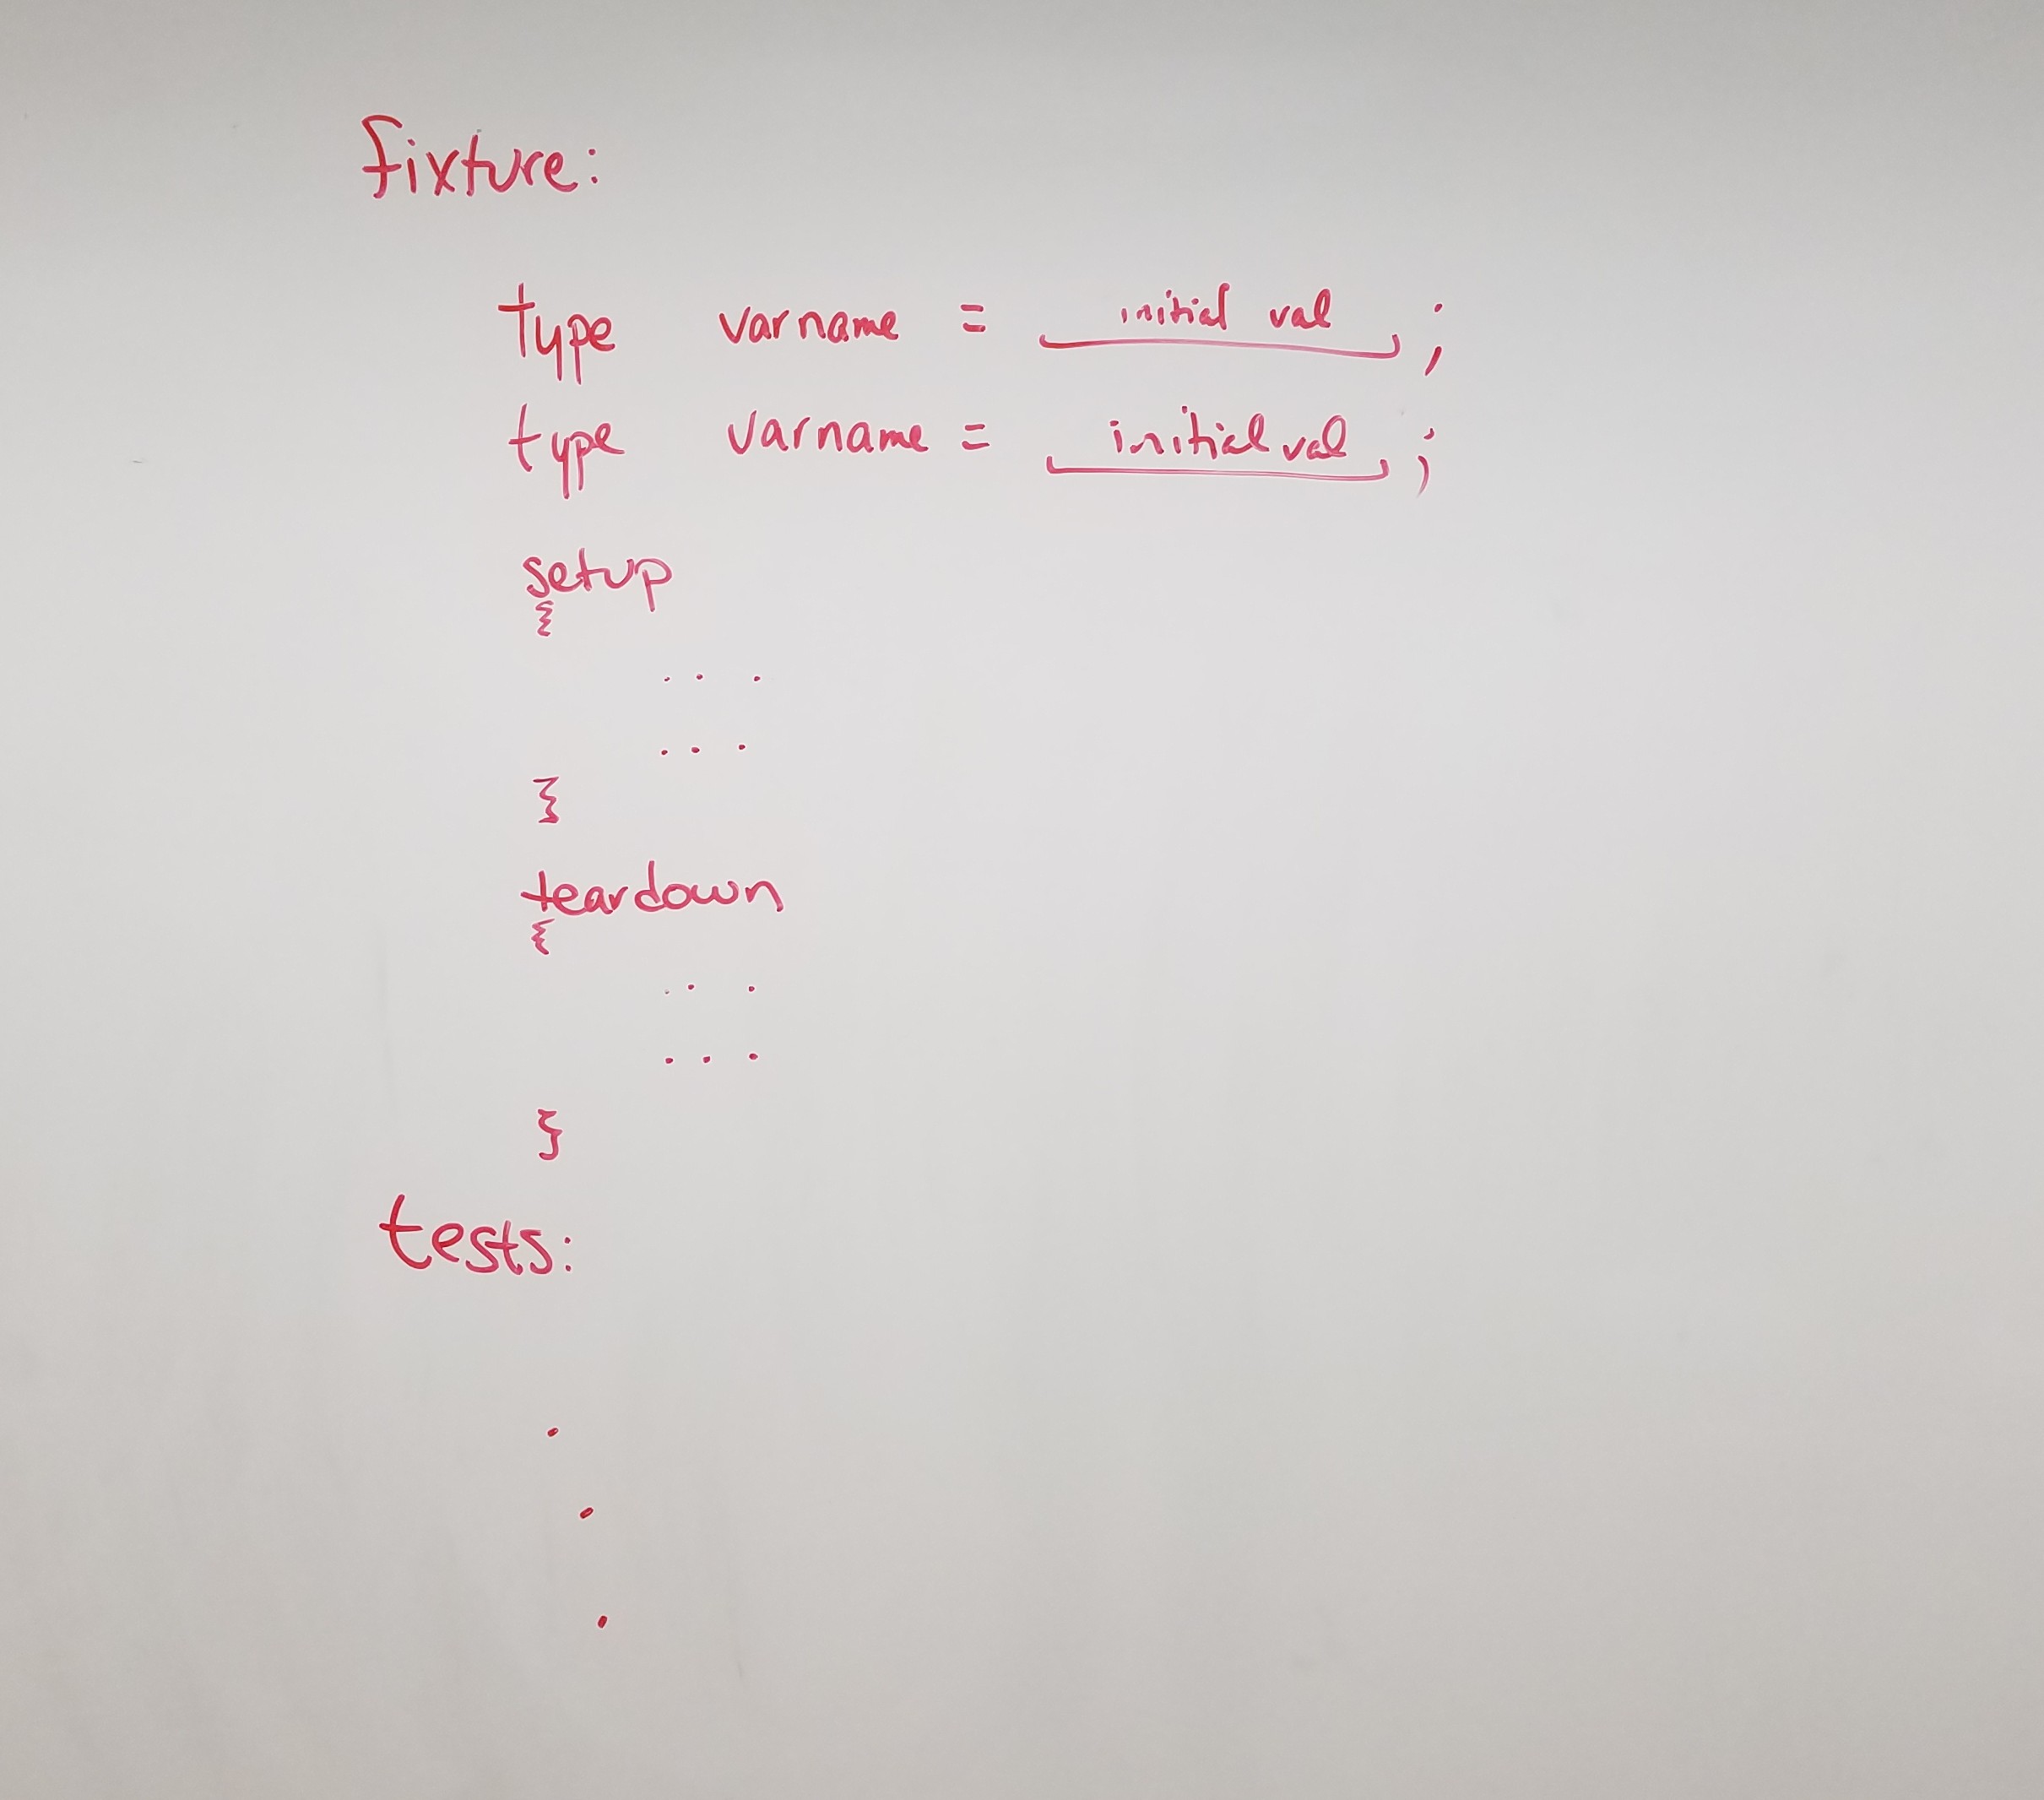 fixture:
type varname = initial val ;
type varname = initial val ;
setup
{
. . .
. . .
}
teardown
{
. . .
. . .
}
tests:
.
.
.